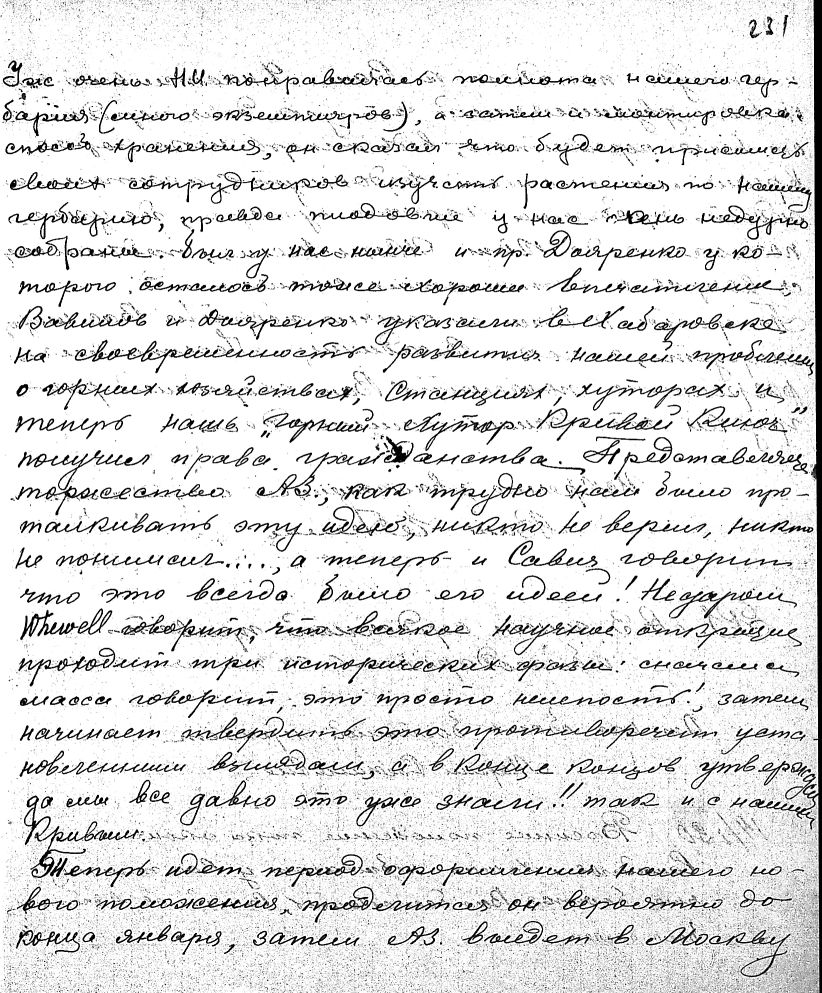 231
Уж очень Н.И. понравилась полнота нашего гер-
бария (много экземпляров), а затем и монтировка,
способ хранения, он сказал что будет присылать
своих сотрудников изучать растения по нашему
гербарию, правда плодовые у нас очень недурно
собраны. Был у нас ныне и пр. Дояренко у ко-
торого осталось тоже хорошее впечатление.
Вавилов и Дояренко указали в Хабаровске
на своевременность развития нашей проблемы
о горных хозяйствах, станциях, хуторах и
теперь нашъ "Горный Хутор Кривой Ключ"
получил права гражданства. Представляете
торжество АЗ., как трудно нам было про-
талкивать эту идею, никто не верил, никто
не понимал...., а теперь и Савич говорит
что это всегда было его идеей! Недаром
Whewell говорит, что всякое научное открытие
проходит три исторических фазы: сначала
масса говорит, это просто нелепость!, затем
начинает твердить это противоречит уста-
новленным взглядам, а в конце концов утверждая
да мы все давно это уже знали!! так и с нашим
Кривым.
Теперь идет период оформления нашего но-
вого положения, продлится он вероятно до
конца января, затем АЗ. выедет в Москву